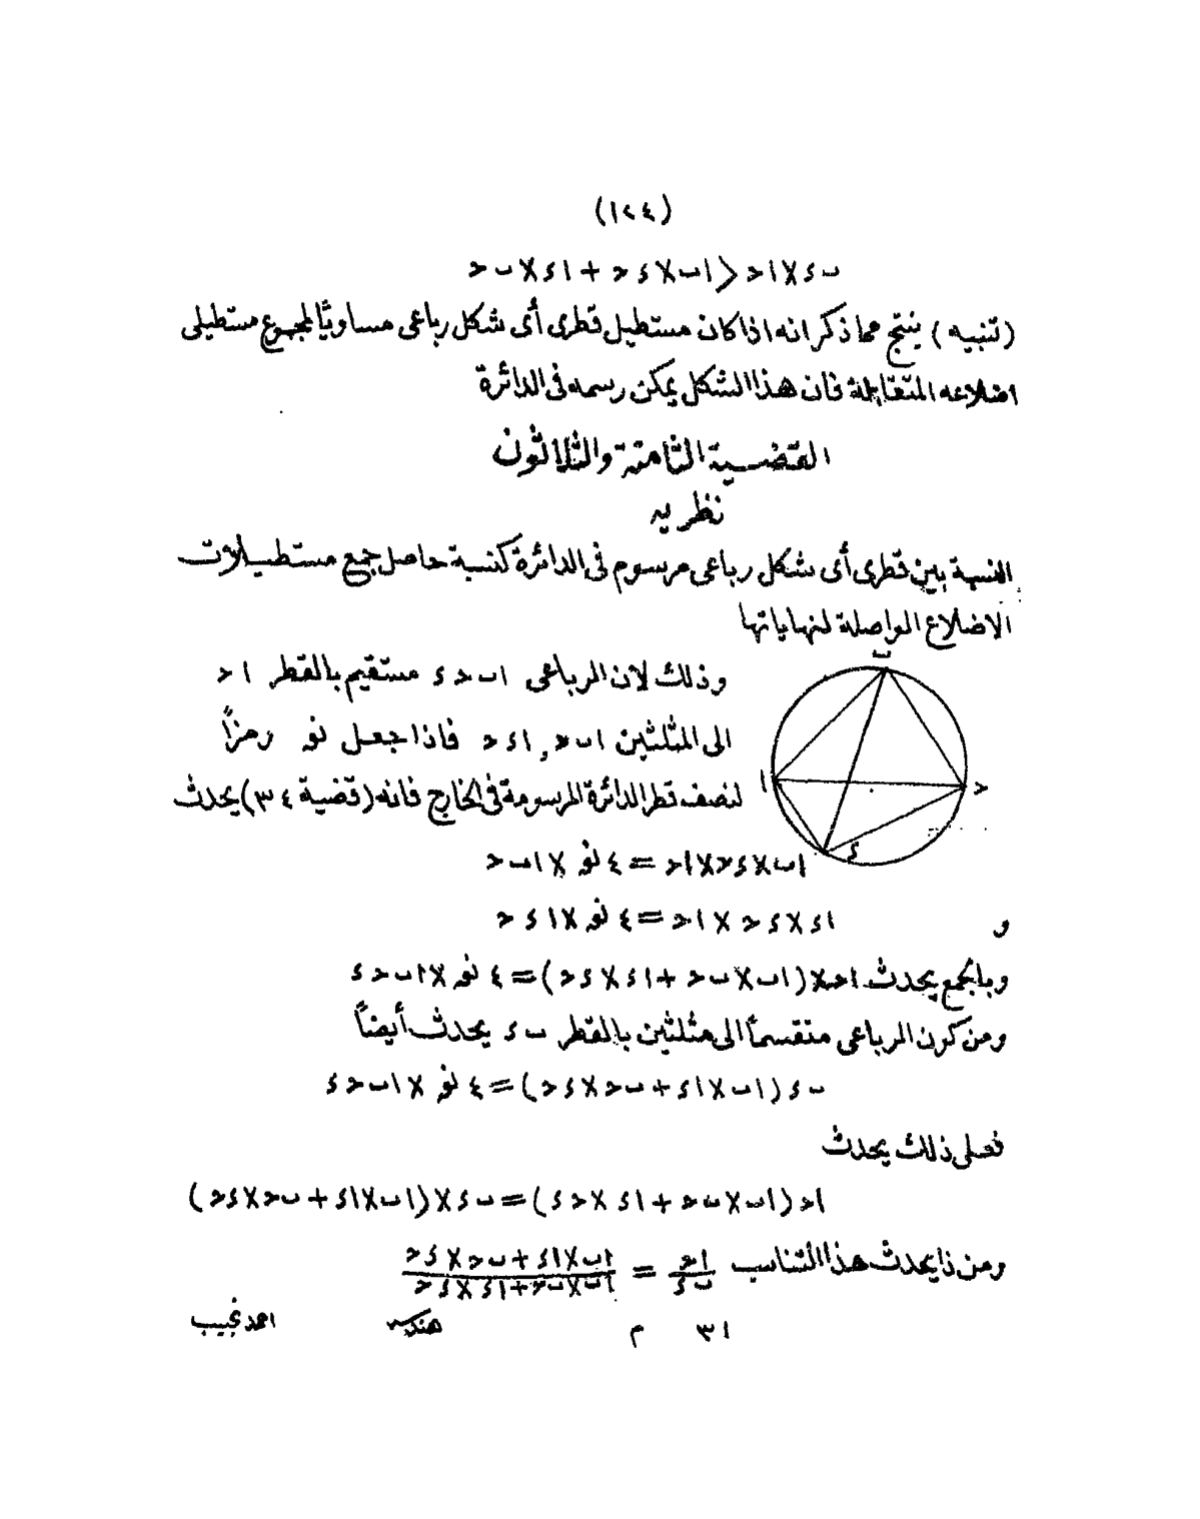 (١٢٤)
ب د × ا ح < ا ب × د ح + ا د × ب ح
(تنبيه) ينتج مما ذكر انه اذا كان مستطيل قطرى أى شكل رباعى مساويًا لمجموع مستطيلى
اضلاعه المتقابلة فان هذا الشكل يمكن رسمه فى الدائرة
القضية الثامنة والثلاثون
نظريه
النسبة بين قطرى أى شكل رباعى مرسوم فى الدائرة كنسبة حاصل جمع مستطيلات
الاضلاع الواصلة لنهاياتها
وذلك لان الرباعى ا ب ح د منقسم بالقطر ا ح
الى المثلثين ا ب ح , ا د ح فاذا جعل نو رمزاً
لنصف قطر الدائرة المرسومة فى الخارج فانه (قضية ٣٤) يحدث
ب
ا
ح
د
ا ب × ب ح × ا ح = ٤ نو × ا ب ح
و ا د × د ح × ا ح = ٤ نو × ا د ح
وبالجمع يحدث ا ح × (ا ب × ب ح + ا د × د ح) = ٤ نو × ا ب ح د
ومن كون الرباعى منقسماً الى مثلثين بالقطر ب د يحدث أيضاً
ب د (ا ب × ا د + ب ح × د ح) = ٤ نو × ا ب ح د
فعلى ذلك يحدث
ا ح (ا ب × ب ح + ا د × ح د) = ب د × (ا ب × ا د + ب ح × د ح)
ومن ذا يحدث هذا التناسب ا ح / ب د = ا ب × ا د + ب ح × د ح / ا ب × ب ح + ا د × د ح
٣١ م هندسه احمد نجيب